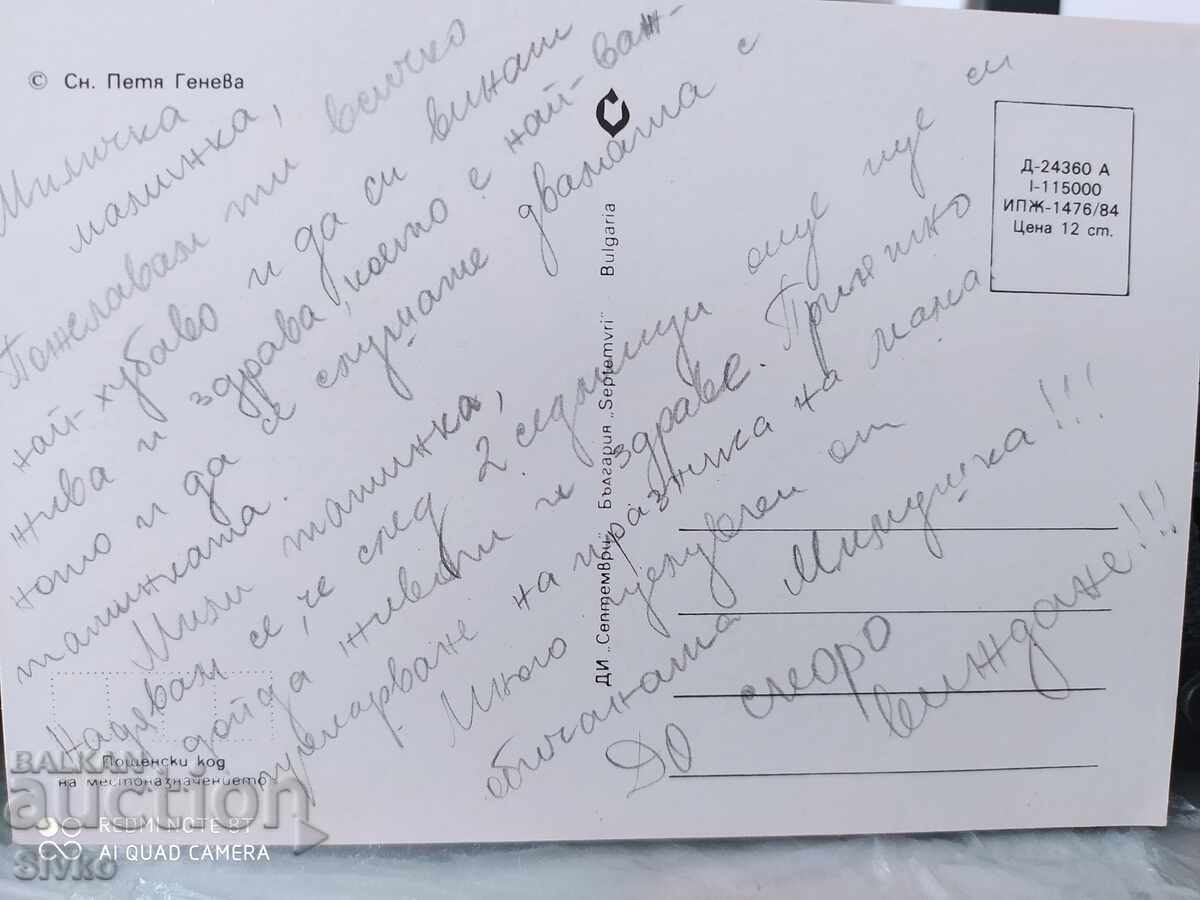 © Сн. Петя Генева
Миличка
мамичка,
Пожелавам ти всичко
най-хубаво и да си винаги
жива и здрава, което е най-важ-
ното и да се слушате двамата с
татинката.
Мили татинка,
Надявам се, че след 2 седмици още ще си
дойда живи и здраве. Приятно
на празника на мама
Много целувчен от
обичаната Милушка!!!
До скоро
виждане!!!
ДИ „Септември" България „Septemvri" Bulgaria
Д-24360 А
I-115000
ИПЖ-1476/84
Цена 12 ст.
Пощенски код
на местоназначението
BALKAN
auction
REDMI NOTE 8T
AI QUAD CAMERA
Sivko